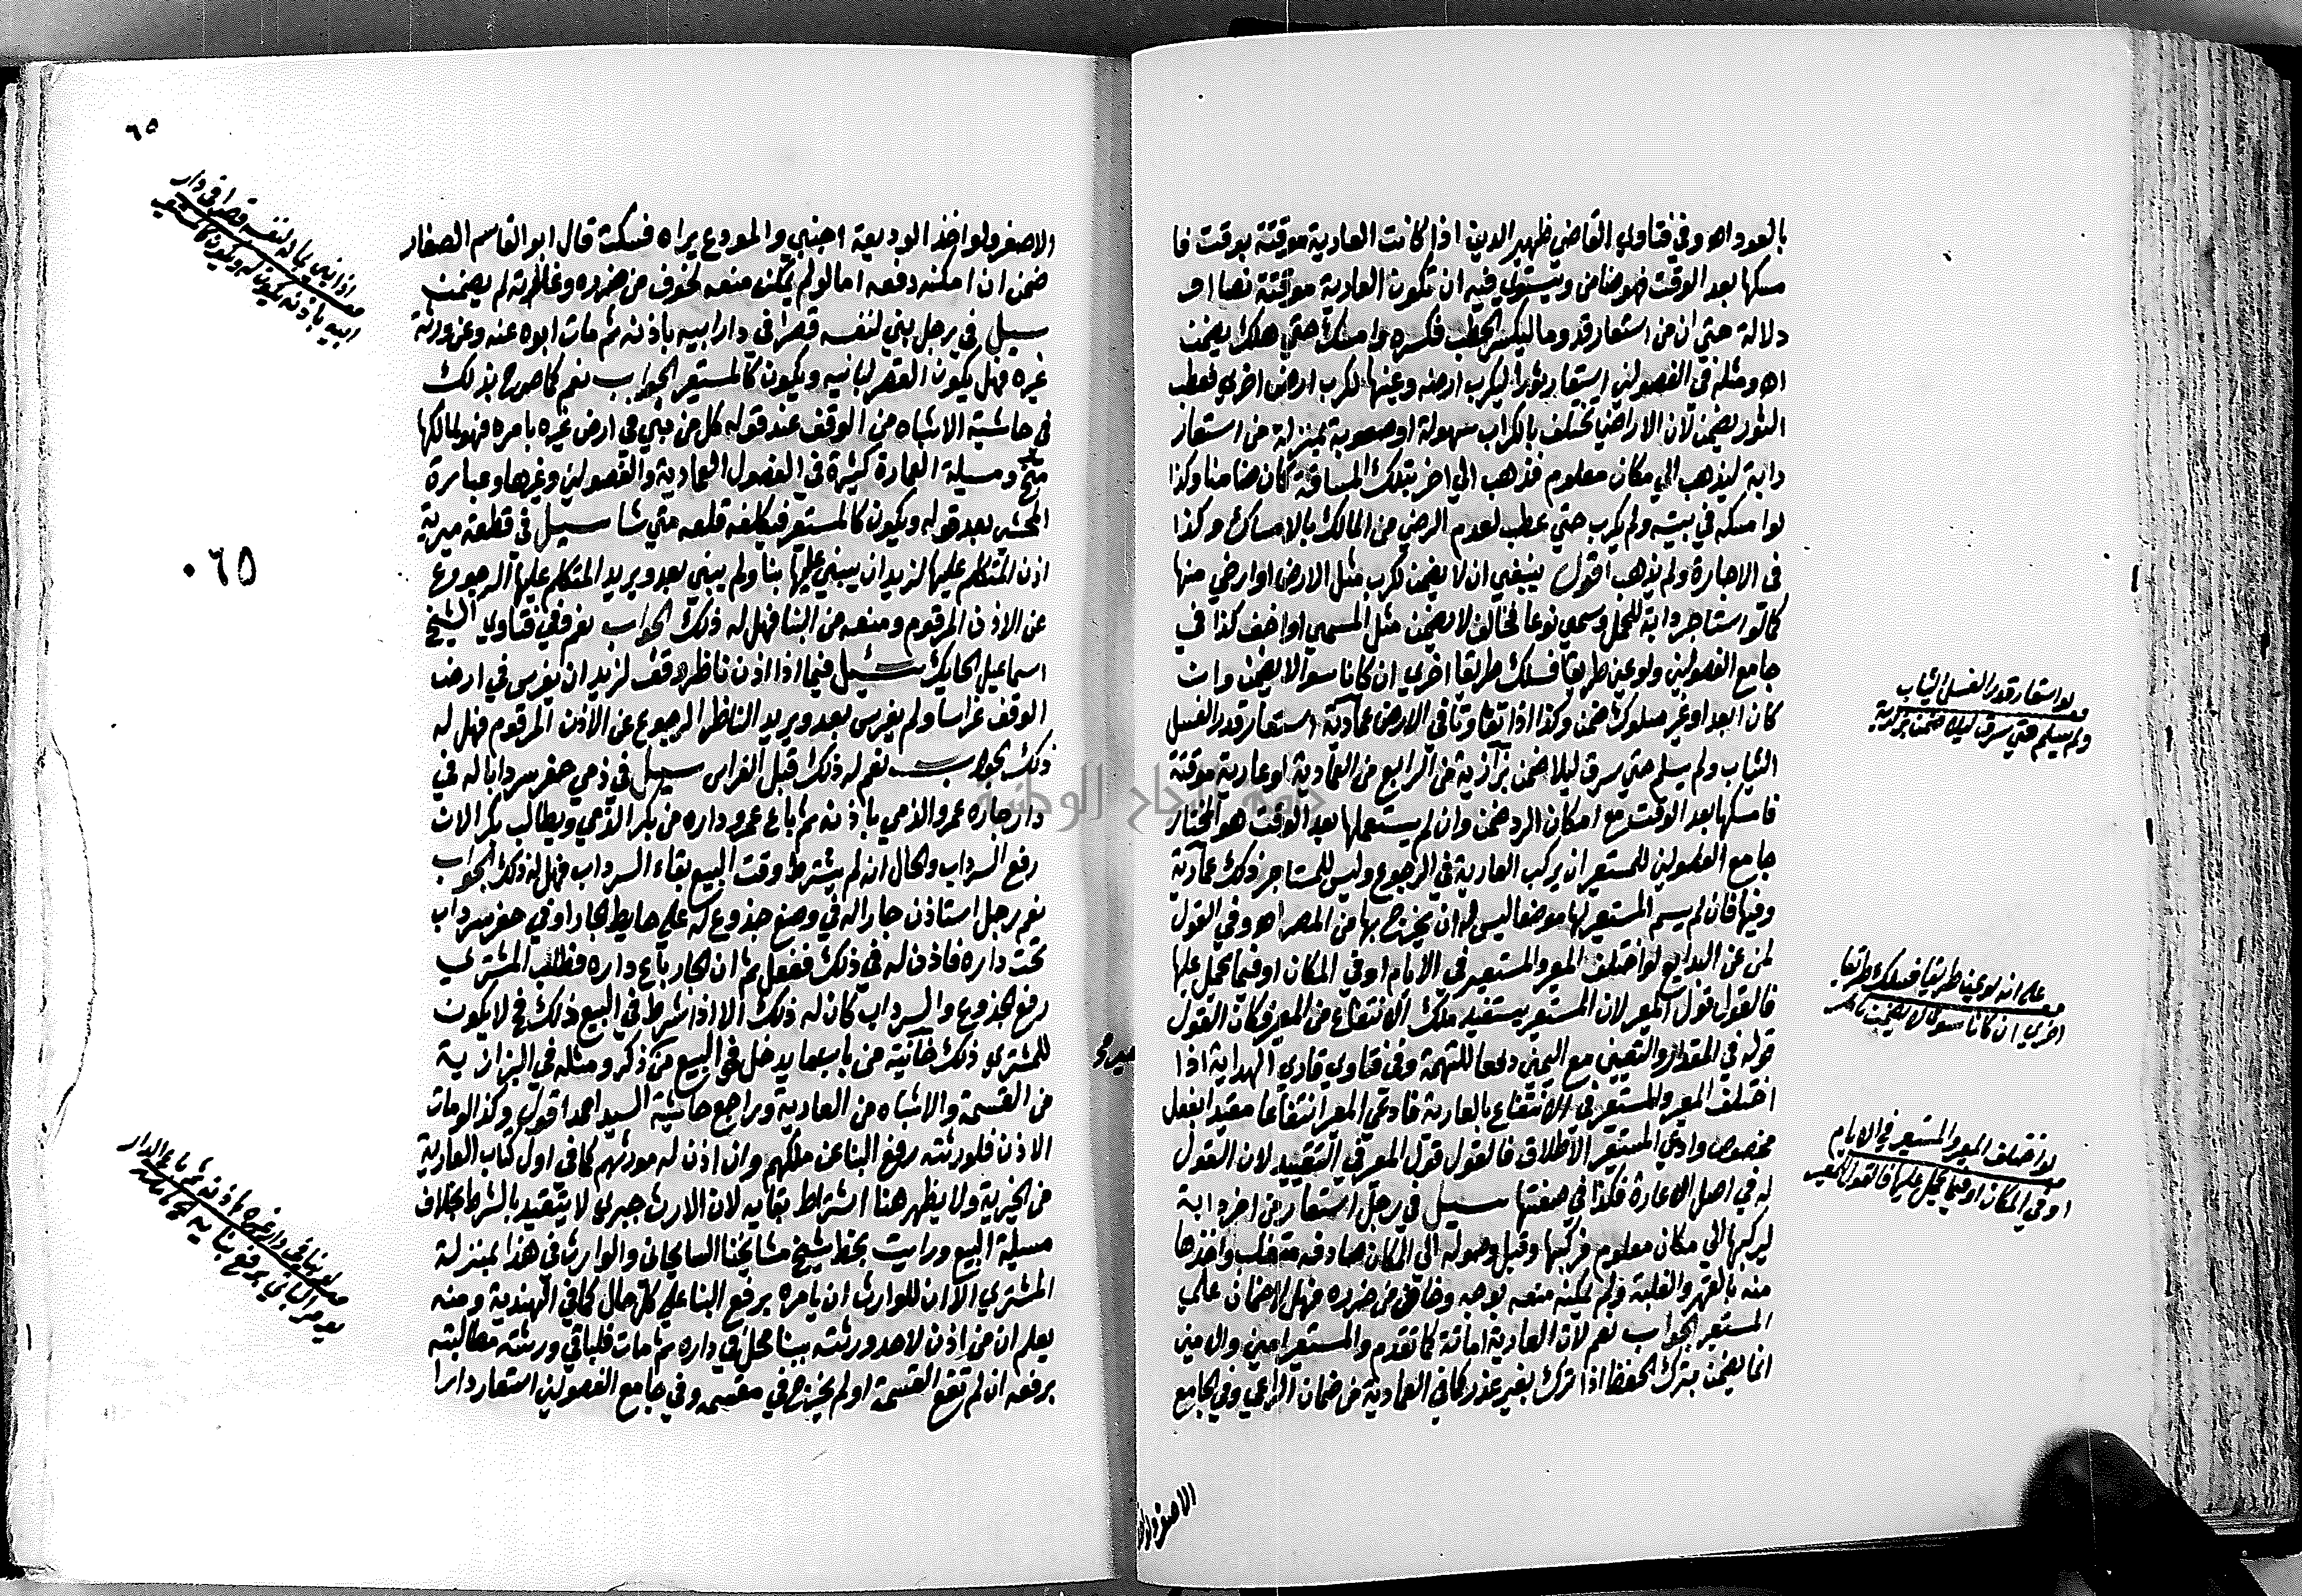 بالعود اه وفي فتاوي القاضي ظهير الدين اذا كانت العارية موقتة بوقت فا
مسكها بعد الوقت فهو ضامن ويستوي فيه ان تكون العارية موقتة نصا او
دلالة حتي ان من استعار قدوما ليكسر الحطب فكسره وامسك حتي هلك يضمن
اه ومثله في الفصولين استعار ثورا ليكرب ارضه وعينها فكرب ارضا اخري فعطب
الثور يضمن لان الاراضي تختلف بالكراب سهولة اوصعوبة بمنزلة من استعار
دابة ليذهب الي مكان معلوم فذهب الي اخر بتلك المسافة كان ضامنا وكذا
لو امسكه في بيته ولم يكرب حتي عطب لعدم الرضي من المالك بالامساك وكذا
في الاجارة ولم يذهب اقول ينبغي ان لا يضمن لو كرب مثل الارض او ارخي منها
كما لو استاجر دابة للحمل وسمي نوعا فخالف لا يضمن مثل المسمي او اخف كذا في
جامع الفصولين ولو عين طريقا فسلك طريقا اخري ان كانا سوا لا يضمن وان
كان ابعد او غير مسلوك ضمن وكذا اذا تفاوتا في الامن عمادية استعار قدر الغسل
الثياب ولم يسلم حتي سرق ليلا ضمن بزازية من الرابع من العارية او عارية موقتة
فامسكها بعد الوقت مع امكان الرد ضمن وان لم يستعملها بعد الوقت هو المختار
جامع الفصولين للمستعير ان يركب العارية في الرجوع وليس للمستاجر ذلك عمادية
وفيها فان لم يسم المستعير لها موضعا ليس له ان يخرج بها من المصر اه وفي القول
لمن عن البدايع لو اختلف المعير والمستعير في الايام او في المكان او فيما يحمل عليها
فالقول قول المعير لان المستعير يستفيد ملك الانتفاع من المعير فكان القول
قوله في المقدار والتعيين مع اليمين دفعا للتهمة وفي فتاوي قاري الهداية اذا
اختلف المعير والمستعير في الانتفاع بالعارية فادعي المعير انتفاعا مقيدا بفعل
مخصوص وادعي المستعير الاطلاق فالقول قول المعير في التقييد لان القول
له في اصل الاعارة فكذا في صفتها سيل في رجل استعار من اخر دابة
ليركبها الي مكان معلوم فركبها وقبل وصوله الي المكان صادفه متغلب واخذها
منه بالقهر والغلبة ولم يمكنه منعه بوجه وخاف من ضرره فهل لا ضمان علي
المستعير الجواب نعم لان العارية امانة كما تقدم والمستعير امين والامين
انما يضمن بترك الحفظ اذا ترك بغير عذر كما في العمادية من ضمان الراعي وفي الجامع
الاصغر ولو
لو استعار قدر الغسل الثياب
ولم يسلم حتي سرق ليلا ضمن بزازية
علي انه لو عين طريقا فسلك طريقا
اخري ان كانا سوا لا يضمن
لو اختلف المعير والمستعير في الايام
او في المكان او فيما يحمل عليها فالقول للمعير
٦٥
الاصغر ولو اخذ الوديعة اجنبي والمودع يراه فسكت قال ابو القاسم الصفار
ضمن ان امكنه دفعه اما لو لم يمكن منعه لخوف من ضرره وغارته لم يضمن
سيل في رجل بني لنفسه قصرا في دار ابيه باذنه ثم مات ابوه عنه وعن ورثة
غيره فهل يكون القصر لبانيه ويكون كالمستعير الجواب نعم كما صرح بذلك
في حاشية الاشباه من الوقف عند قوله كل من بني في ارض غيره بامره فهو لمالكها
الخ ومسيلة العمارة كثيرة في الفصول العمادية والفصولين وغيرها وعبارة
المحشي بعد قوله ويكون كالمستعير فيكلفه قلعه متي شا سيل في قطعة ميرية
اذن المتكلم عليها لزيد ان يبني عليها بنا ولم يبني بعد ويريد المتكلم عليها الرجوع
عن الاذن المرقوم ومنعه من البنا فهل له ذلك الجواب نعم ففي فتاوي الشيخ
اسماعيل الحايك سيل فيما اذا اذن ناظر وقف لزيد ان يغرس في ارض
الوقف غراسا ولم يغرس بعد ويريد الناظر الرجوع عن الاذن المرقوم فهل له
ذلك الجواب نعم له ذلك قبل الغراس سيل في ذمي حفر سردابا له في
دار جاره عمرو الذمي باذنه ثم باع عمرو داره من بكر الذمي ويطالب بكر الان
رفع السرداب والحال انه لم يشترط وقت البيع بقاء السرداب فهل له ذلك الجواب
نعم رجل استاذن جارا له في وضع جذوع له علي حايط الجار او في حفر سرداب
تحت داره فاذن له في ذلك ففعل ثم ان الجار باع داره فطلب المشتري
رفع الجذوع والسرداب كان له ذلك الا اذا شرط في البيع ذلك فح لا يكون
للمشتري ذلك خانية من باب ما يدخل في البيع من ذكر ومثله في البزازية
من القسمة والاشباه من العارية وراجع حاشية السيد احمد اقول وكذا لو مات
الاذن فلورثته رفع البنا عن ملكهم وان اذن له مورثهم كما في اول كتاب العارية
من الخيرية ولا يظهر هنا اشتراط بقايه لان الارث جبري لا يتقيد بالشرط بخلاف
مسيلة البيع ورايت بخط شيخ مشايخنا السايحاني والوارث في هذا بمنزلة
المشتري الا ان للوارث ان يامره برفع البنا علي كل حال كما في الهندية ومنه
يعلم ان من اذن لاحد ورثته ببنا محل في داره ثم مات فلباقي ورثته مطالبته
برفعه ان لم تقع القسمة او لم يخرج في مقسمه وفي جامع الفصولين استعار دارا
اذا بني بماله لنفسه قصرا في دار
ابيه باذنه يكون له ويكون كالمستعير
٠٦٥